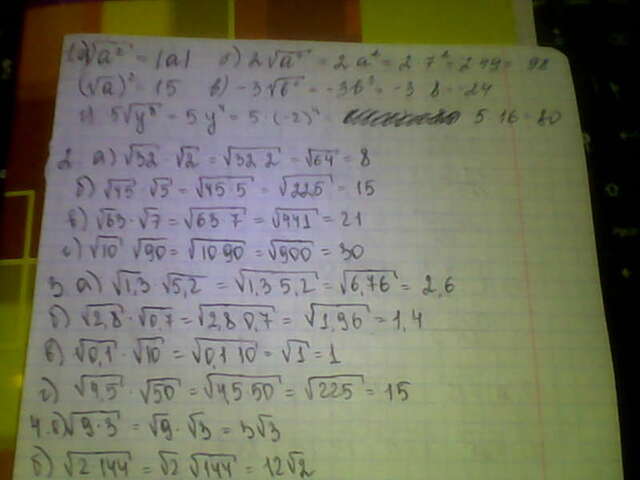 1) а) √a² = |a| б) 2√a⁴ = 2a² = 2·7² = 2·49 = 98
(√a)² = 15 в) -3√b⁶ = -3b³ = -3·8 = -24
г) 5√y⁸ = 5y⁴ = 5·(-2)⁴ 5·16=80
2. а) √32·√2 = √32·2 = √64 = 8
б) √45·√5 = √45·5 = √225 = 15
в) √63·√7 = √63·7 = √441 = 21
г) √10·√90 = √10·90 = √900 = 30
3. а) √1,3·√5,2 = √1,3·5,2 = √6,76 = 2,6
б) √2,8·√0,7 = √2,8·0,7 = √1,96 = 1,4
в) √0,1·√10 = √0,1·10 = √1 = 1
г) √4,5·√50 = √4,5·50 = √225 = 15
4. а) √9·3 = √9·√3 = 3√3
б) √2·144 = √2·√144 = 12√2